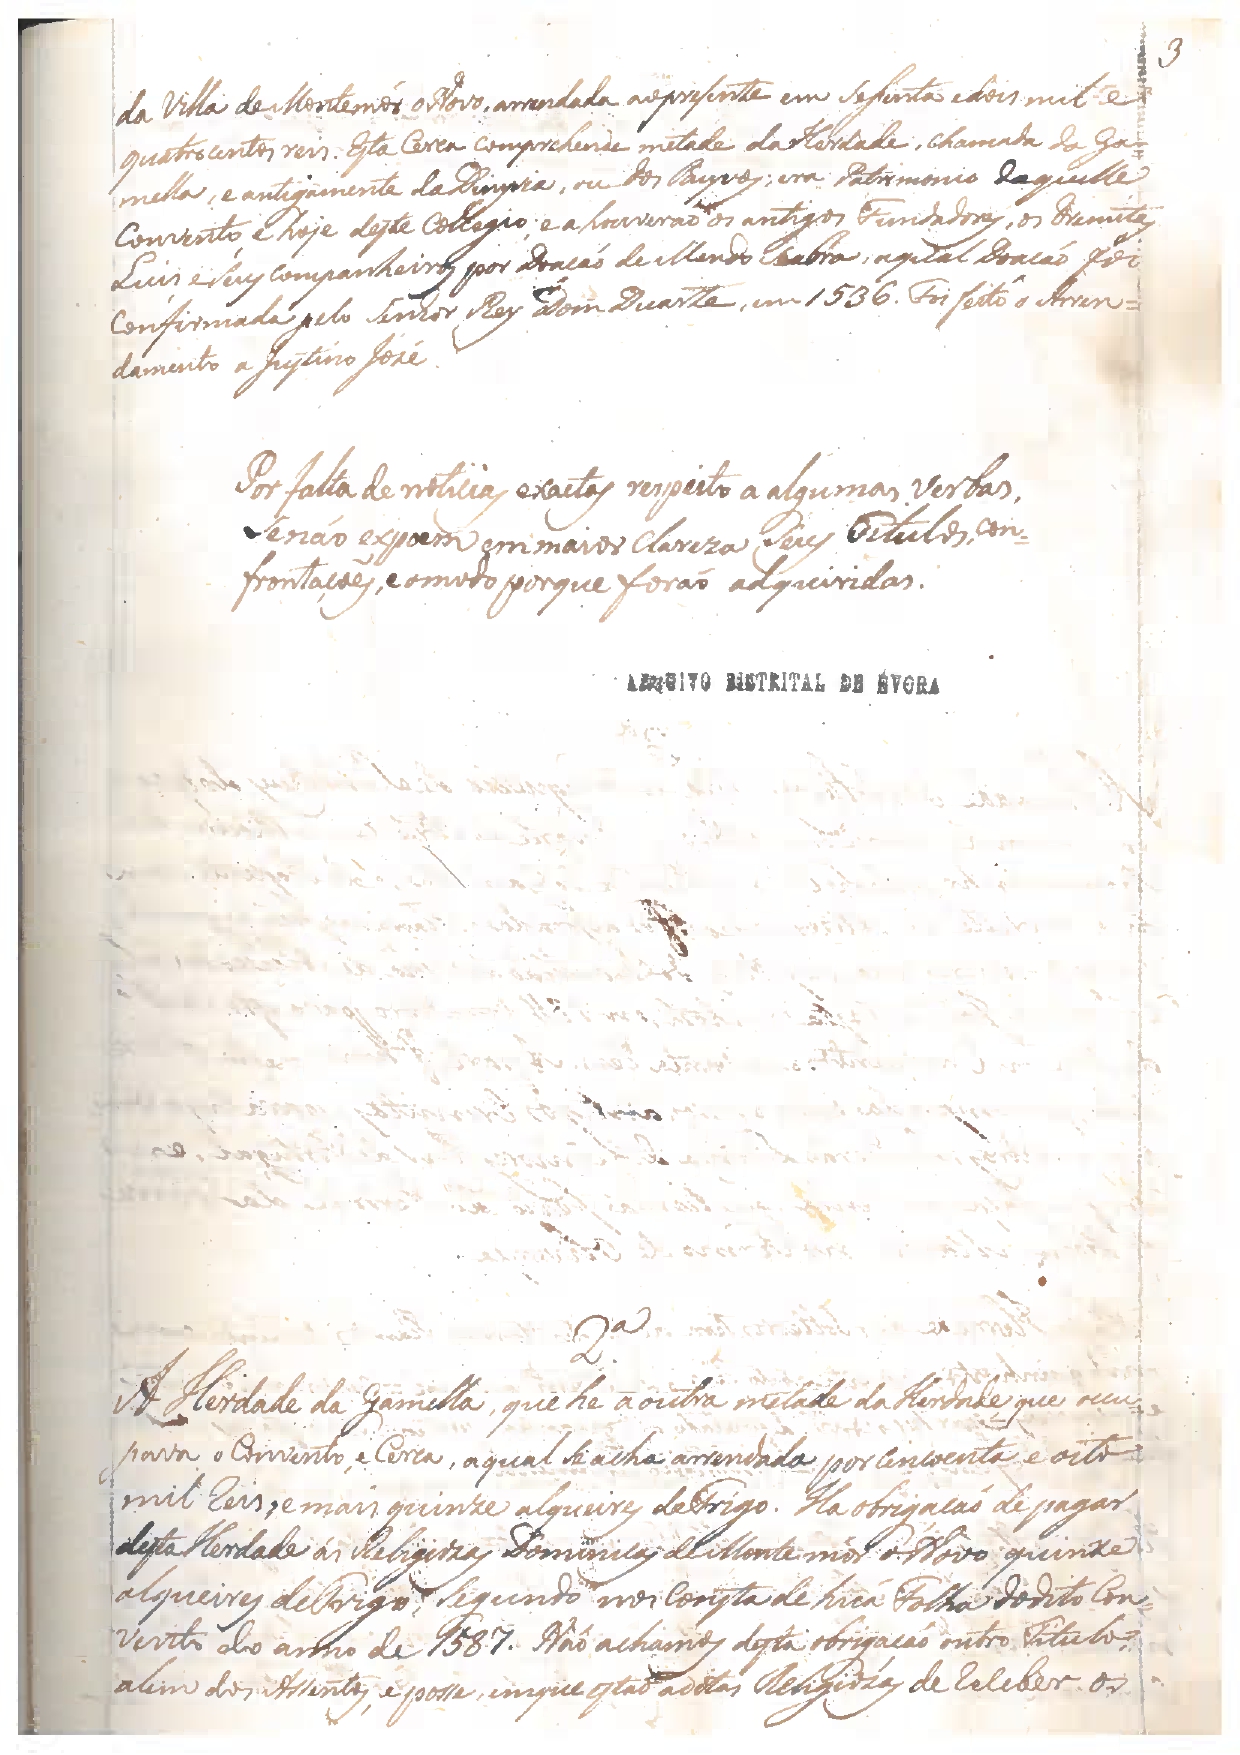 3
da Villa de Montemór o Novo, arrendada ao presente em sessenta e dois mil e
quatrocentos reis. Esta Cerca comprehende metade da Herdade, chamada da Ga-
mella, e antigamente da, ou dos; era Patrimonio daquelle
Convento, e hoje deste Collegio, e a houverão os antigos Fundadores, os Eremitas
Luis e seus companheiros por Doacaõ de Mendo Seabra, a qual Doacaõ foi
confirmada pelo Senhor Rey Dom Duarte, em 1536. Foi feito o Arren=
damento a Justino José.
Por falta de noticias exactas respeito a algumas verbas,
senaõ expoem em maior clareza seus Titulos, con=
frontaçoẽs, e o modo porque foraõ adquiridas.
ARQUIVO DISTRITAL DE ÉVORA
2ª
A Herdade da Gamella, que he a outra metade da Herdade que ocu=
pava o Convento, e Cerca, a qual se acha arrendada por cincoenta e oito
mil reis, e mais quinze alqueires de Trigo. Ha obrigacaõ de pagar
desta Herdade ás Religiozas Dominicas de Monte mór o Novo quinze
alqueires de Trigo, segundo nos consta de huã Folha do dito Con=
vento do anno de 1587. Naõ achamos desta obrigacaõ outro Titulo,
alem dos Assentos, e posse, em que estaõ as ditas Religiozas de receber os